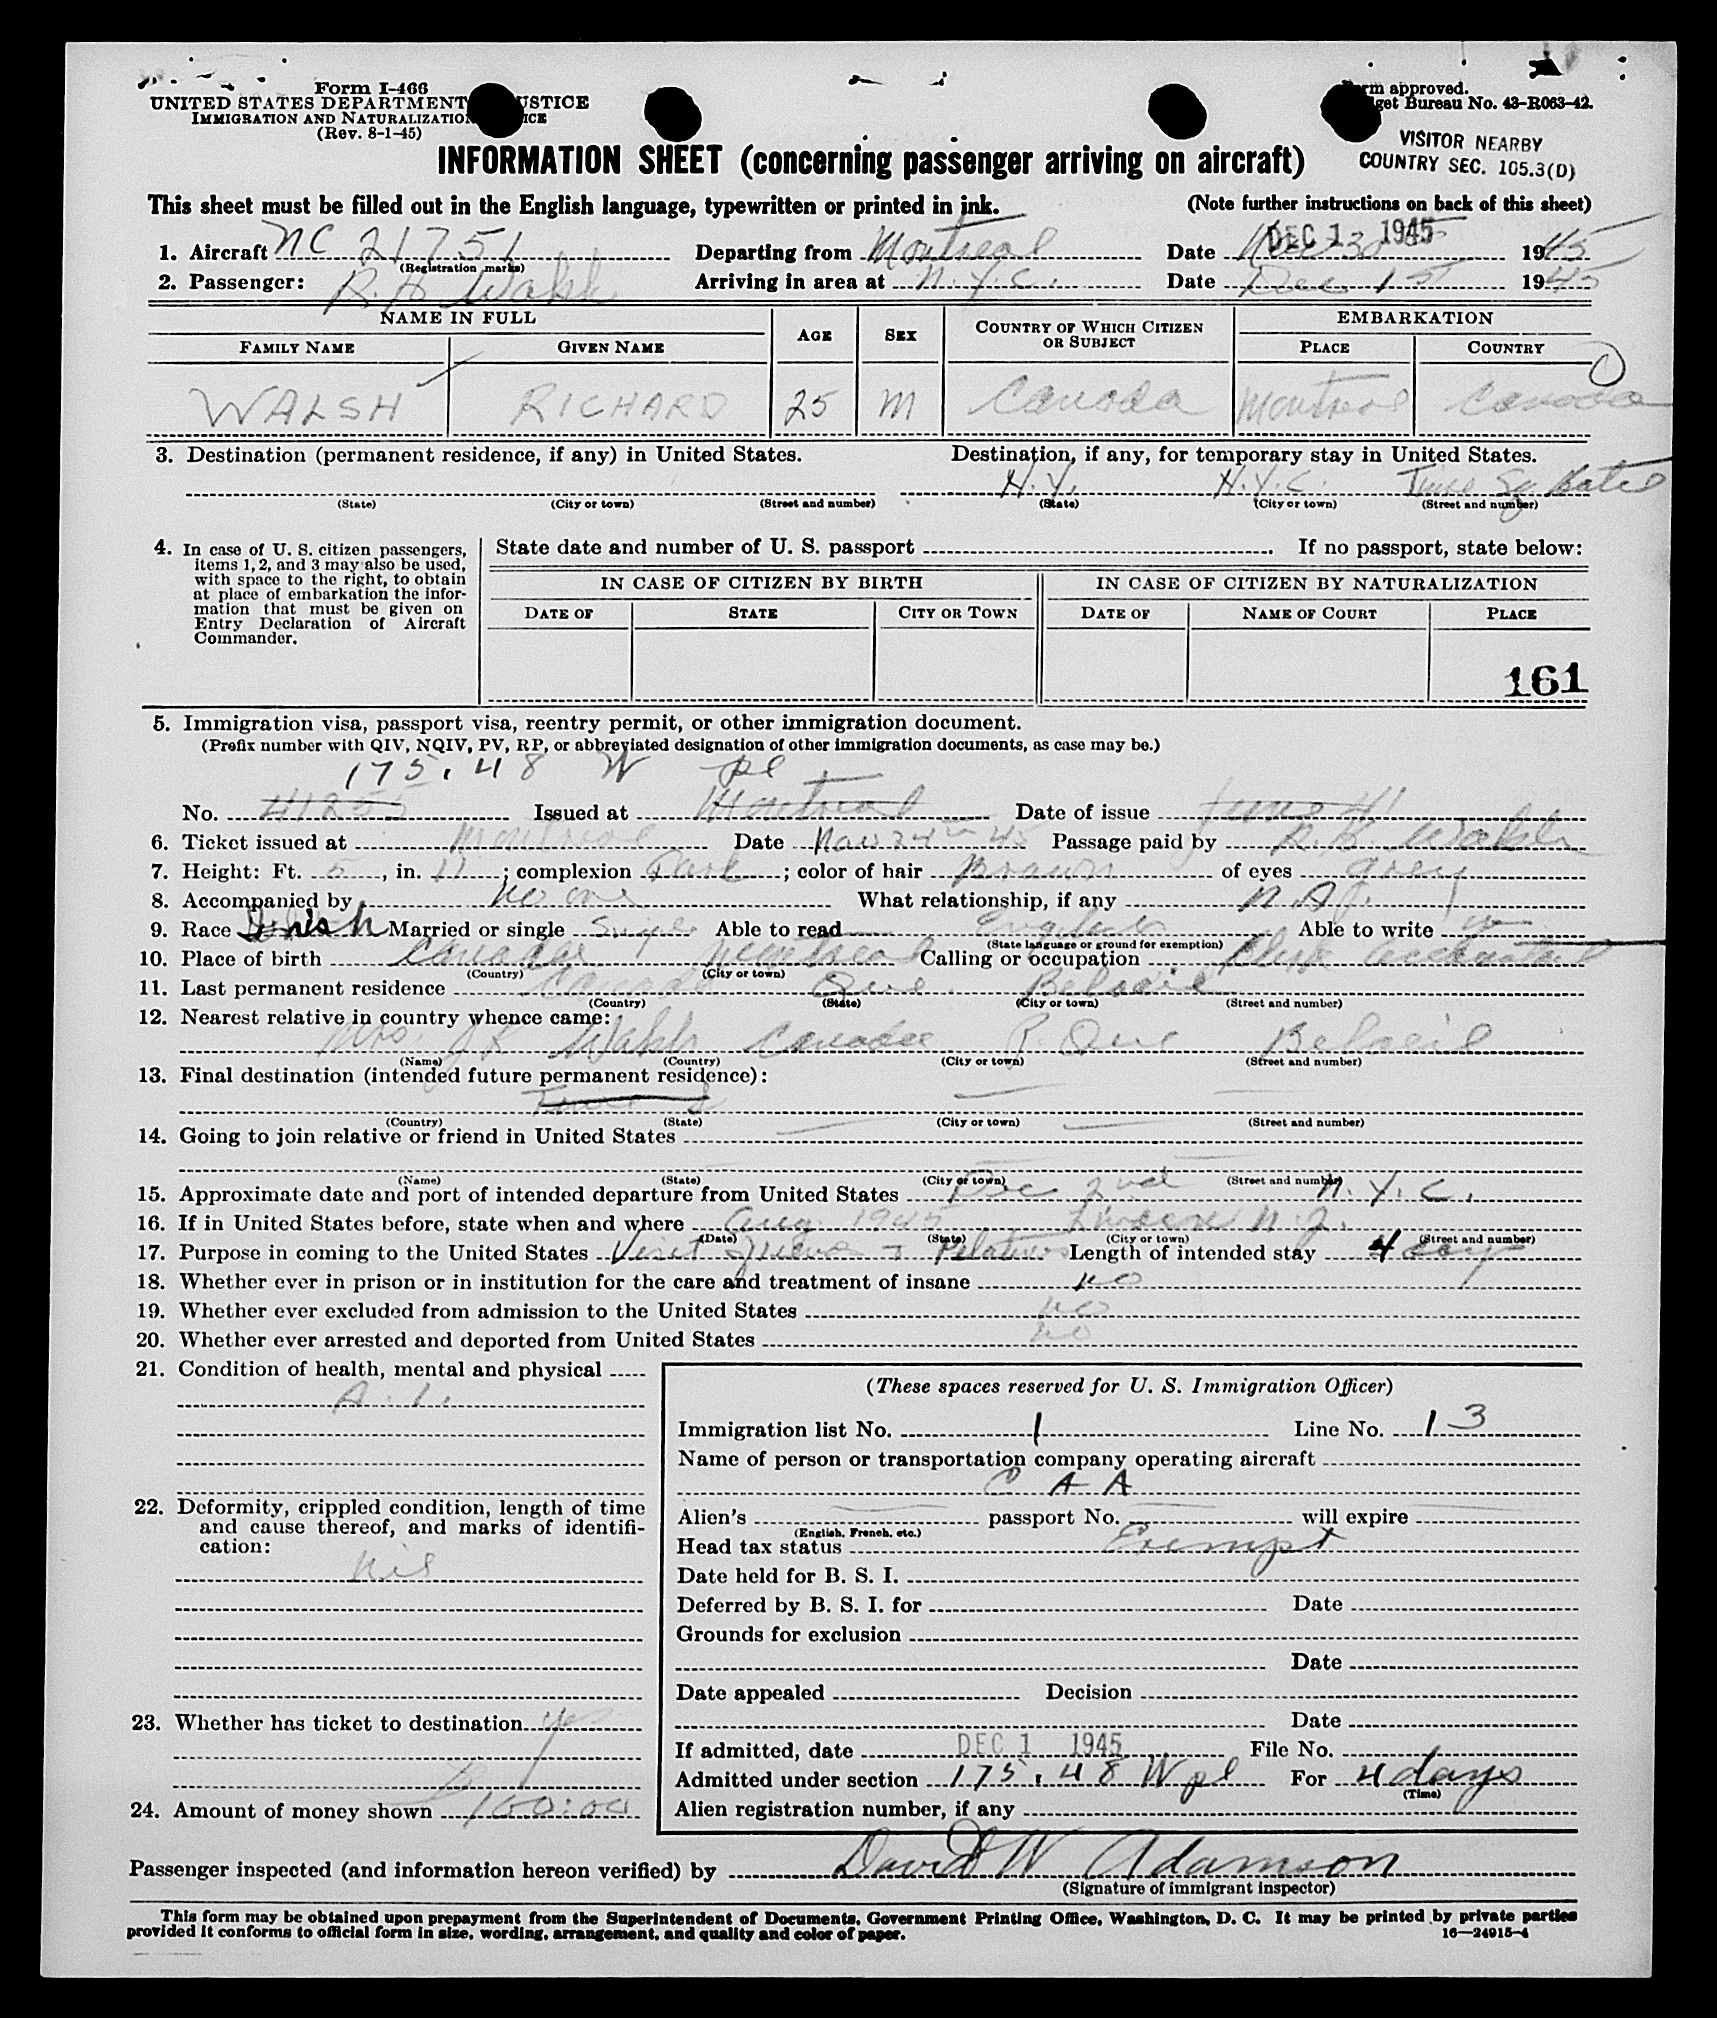 Form I-466
UNITED STATES DEPARTMENT JUSTICE
IMMIGRATION AND NATURALIZATION
(Rev. 8-1-45)
Form approved.
Budget Bureau No. 43-R063-42.
VISITOR NEARBY
COUNTRY SEC. 105.3(D)
INFORMATION SHEET (concerning passenger arriving on aircraft)
This sheet must be filled out in the English language, typewritten or printed in ink.
(Note further instructions on back of this sheet)
DEC 1 1945
1. Aircraft NC 21751 Departing from Montreal Date Nov 30 1945
(Registration marks)
2. Passenger: R. H. Walsh Arriving in area at N.Y.C. Date Dec 1st 1945
NAME IN FULL
AGE SEX COUNTRY OF WHICH CITIZEN OR SUBJECT EMBARKATION
FAMILY NAME GIVEN NAME PLACE COUNTRY
WALSH RICHARD 25 M Canada Montreal Canada
3. Destination (permanent residence, if any) in United States. Destination, if any, for temporary stay in United States.
N.Y. N.Y.C. Times Sq. Hotel
(State) (City or town) (Street and number) (State) (City or town) (Street and number)
4. In case of U. S. citizen passengers, items 1, 2, and 3 may also be used, with space to the right, to obtain at place of embarkation the information that must be given on Entry Declaration of Aircraft Commander.
State date and number of U. S. passport If no passport, state below:
IN CASE OF CITIZEN BY BIRTH IN CASE OF CITIZEN BY NATURALIZATION
DATE OF STATE CITY OR TOWN DATE OF NAME OF COURT PLACE
161
5. Immigration visa, passport visa, reentry permit, or other immigration document.
(Prefix number with QIV, NQIV, PV, RP, or abbreviated designation of other immigration documents, as case may be.)
175.48 W pl
No. 41255 Issued at Montreal Date of issue June 41
6. Ticket issued at Montreal Date Nov 24th 45 Passage paid by R. H. Walsh
7. Height: Ft. 5, in. 11; complexion Dark; color of hair Brown of eyes grey
8. Accompanied by No one What relationship, if any N.A.
9. Race Irish Married or single Single Able to read English Able to write
(State language or ground for exemption)
10. Place of birth Canada Montreal Calling or occupation Clerk Accountant
(Country) (City or town)
11. Last permanent residence Canada Que. Beloeil
(Country) (State) (City or town) (Street and number)
12. Nearest relative in country whence came:
Mrs. J R Walsh Canada P. Que Beloeil
(Name) (Country) (City or town) (Street and number)
13. Final destination (intended future permanent residence):
(Country) (State) (City or town) (Street and number)
14. Going to join relative or friend in United States
(Name) (State) (City or town) (Street and number)
15. Approximate date and port of intended departure from United States Dec 2nd N.Y.C.
16. If in United States before, state when and where Aug. 1945 Linden N.J.
(Date) (State) (City or town) (Street and number)
17. Purpose in coming to the United States Visit Friends + Relatives Length of intended stay 4 days
18. Whether ever in prison or in institution for the care and treatment of insane no
19. Whether ever excluded from admission to the United States no
20. Whether ever arrested and deported from United States no
21. Condition of health, mental and physical
A.1.
22. Deformity, crippled condition, length of time and cause thereof, and marks of identification:
nil
23. Whether has ticket to destination Yes
24. Amount of money shown 100:00
(These spaces reserved for U. S. Immigration Officer)
Immigration list No. 1 Line No. 13
Name of person or transportation company operating aircraft
C A A
Alien's passport No. will expire
(English, French, etc.)
Head tax status Exempt
Date held for B. S. I.
Deferred by B. S. I. for Date
Grounds for exclusion
Date
Date appealed Decision
Date
If admitted, date DEC 1 1945 File No.
Admitted under section 175.48 W pl For 4 days
(Time)
Alien registration number, if any
Passenger inspected (and information hereon verified) by David W Adamson
(Signature of immigrant inspector)
This form may be obtained upon prepayment from the Superintendent of Documents, Government Printing Office, Washington, D. C. It may be printed by private parties
provided it conforms to official form in size, wording, arrangement, and quality and color of paper.
16—24915-4